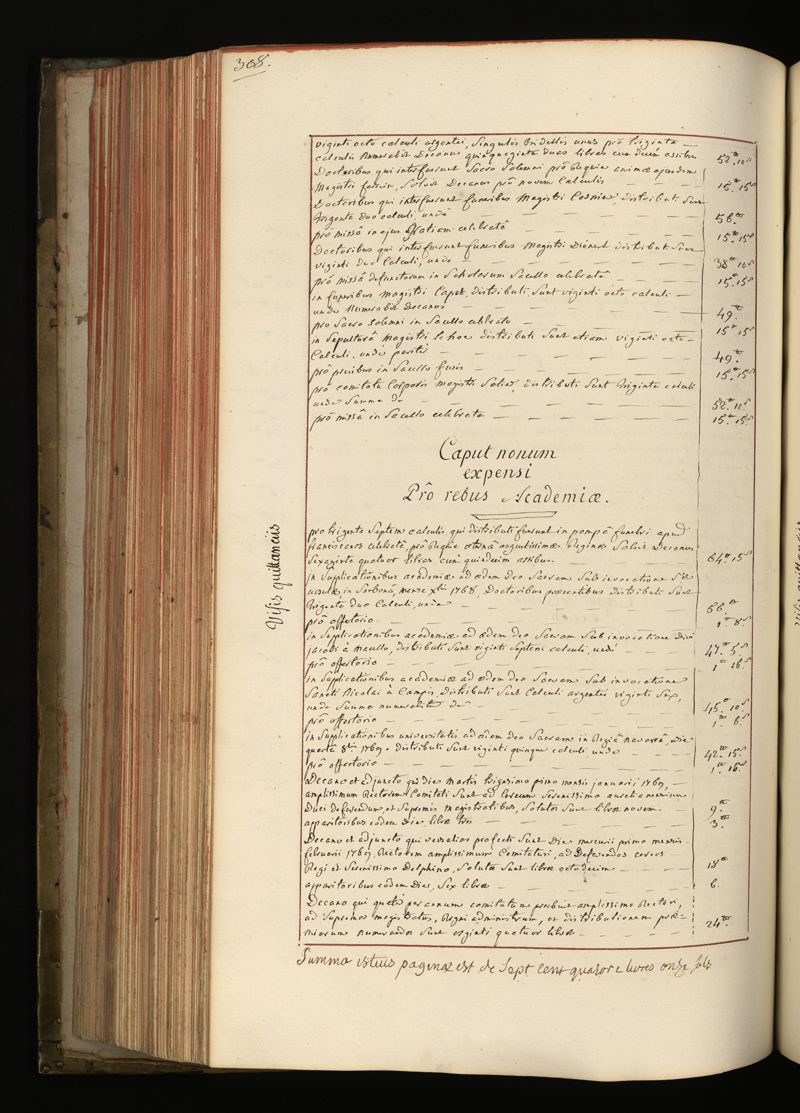 308.
viginti octo calculi argentei, singulis bidellis unus pro triginta
calculis numerabit Decanus quinquaginta duas libras cum decem assibus 52.tt 10s
Doctoribus qui interfuerunt sacro solemni prô requie animæ ejusdem
Magistri solvit Decanus prô novem Calculis 15.tt 15s
Doctoribus qui interfuerunt funeribus Magistri distributi sunt
triginta duo calculi, undè 56.tt
prô missâ in ejus gratiam celebratâ 15.tt 15s
Doctoribus qui interfuerunt funeribus Magistri Dienert distributi sunt
viginti duo Calculi, unde 38.tt 10s
prô missâ defunctorum in Scholarum Sacello celebratâ 15.tt 15s
in funeribus magistri Capet, distributi sunt viginti octo calculi
unde numerabit Decanus 49.tt
pro Sacro solemni in Sacello celebrato 15.tt 15s
in sepulturâ Magistri le hoc distributi sunt etiam viginti octo
Calculi, unde pariter 49.tt
prô precibus in Sacello fusis 15.tt 15s
prô comitatu Corporis magistri distributi sunt triginta calculi
unde summa de 52.tt 10s
prô missâ in Sacello celebrata 15.tt 15s
Caput nonum
expensi
Prô rebus Academiæ.
Visis quittanciis
pro triginta septem calculis qui distributi fuerunt in pompâ funebri apud
franciscanos celebratâ, prô requie æternâ augustissimæ Reginæ solvit Decanus
sexaginta quatuor libras cum quindecim assibus. 64.tt 15s
in supplicationibus academiæ ad ædem deo sacram sub invocatione Stæ
ursulæ in Sorbonâ, mense xbri 1768, Doctoribus præsentibus distributi sunt
triginta duo Calculi, unde 56.tt
prô offertorio 1.tt 8s
in supplicationibus academiæ ad ædem deo sacram sub invocatione divi
jacobi à macello, distributi sunt viginti septem calculi, undè 47.tt 5s
prô offertorio 1.tt 16s
in supplicationibus academiæ ad ædem deo sacram sub invocatione
Sancti Nicolai à Campis, distributi sunt Calculi argentei viginti sex,
unde summa numerabitur de 45.tt 10s
prô offertorio 1.tt 6s
in supplicationibus universitatis ad ædem deo sacram in Regiâ navarrâ, die
quartâ 8bris 1769. distributi sunt viginti quinque calculi unde 42.tt 15s
prô offertorio 1.tt 16s
Decano et adjuncto qui die martis trigesimo primo mensis januarij 1769,
amplissimum Rectorem Comitati sunt ad Cereum Serenissimo aurelianensium
Duci deferendum, et supremis magistratibus, solutæ sunt libræ novem. 9.tt
apparitoribus eodem die libræ tres 3.tt
Decano et adjuncto qui versalias profecti sunt die mercurii primo mensis
februarii 1769, Rectorem amplissimum Comitaturi, ad deferendos cereos
Regi et Serenissimo Delphino, solutæ sunt libræ octodecim 18.tt
apparitoribus eodem die, sex libræ 6.
Decano qui quater per annum comitatum præbuit amplissimo Rectori,
ad supremos magistratus, Regni administrum, et distributionem præ-
miorum numerandæ sunt viginti quatuor libræ 24.tt
Summa istius paginæ est de sept cent quatorze livres onze sols